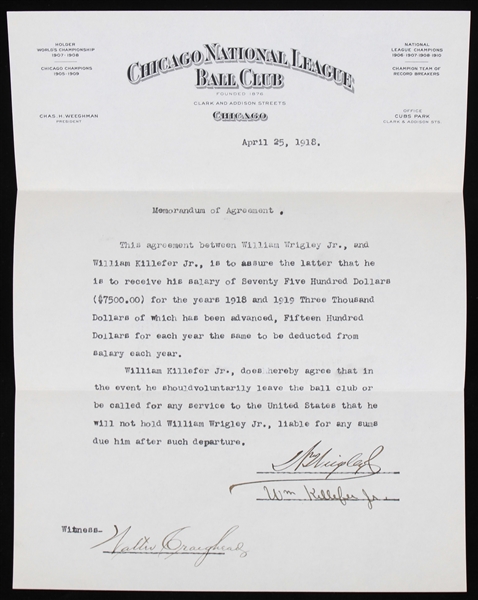 HOLDER
WORLD'S CHAMPIONSHIP
1907-1908
CHICAGO CHAMPIONS
1905-1909
CHAS. H. WEEGHMAN
PRESIDENT
CHICAGO NATIONAL LEAGUE
BALL CLUB
FOUNDED 1876
CLARK AND ADDISON STREETS
CHICAGO
NATIONAL
LEAGUE CHAMPIONS
1906 1907-1908-1910
CHAMPION TEAM OF
RECORD BREAKERS
OFFICE
CUBS PARK
CLARK & ADDISON STS.
April 25, 1918.
Memorandum of Agreement.
This agreement between William Wrigley Jr., and
William Killefer Jr., is to assure the latter that he
is to receive his salary of Seventy Five Hundred Dollars
($7500.00) for the years 1918 and 1919 Three Thousand
Dollars of which has been advanced, Fifteen Hundred
Dollars for each year the same to be deducted from
salary each year.
William Killefer Jr., does hereby agree that in
the event he shouldvoluntarily leave the ball club or
be called for any service to the United States that he
will not hold William Wrigley Jr., liable for any sums
due him after such departure.
Wm Wrigley Jr
Wm Killefer Jr.
Witness.
Walter Craighead